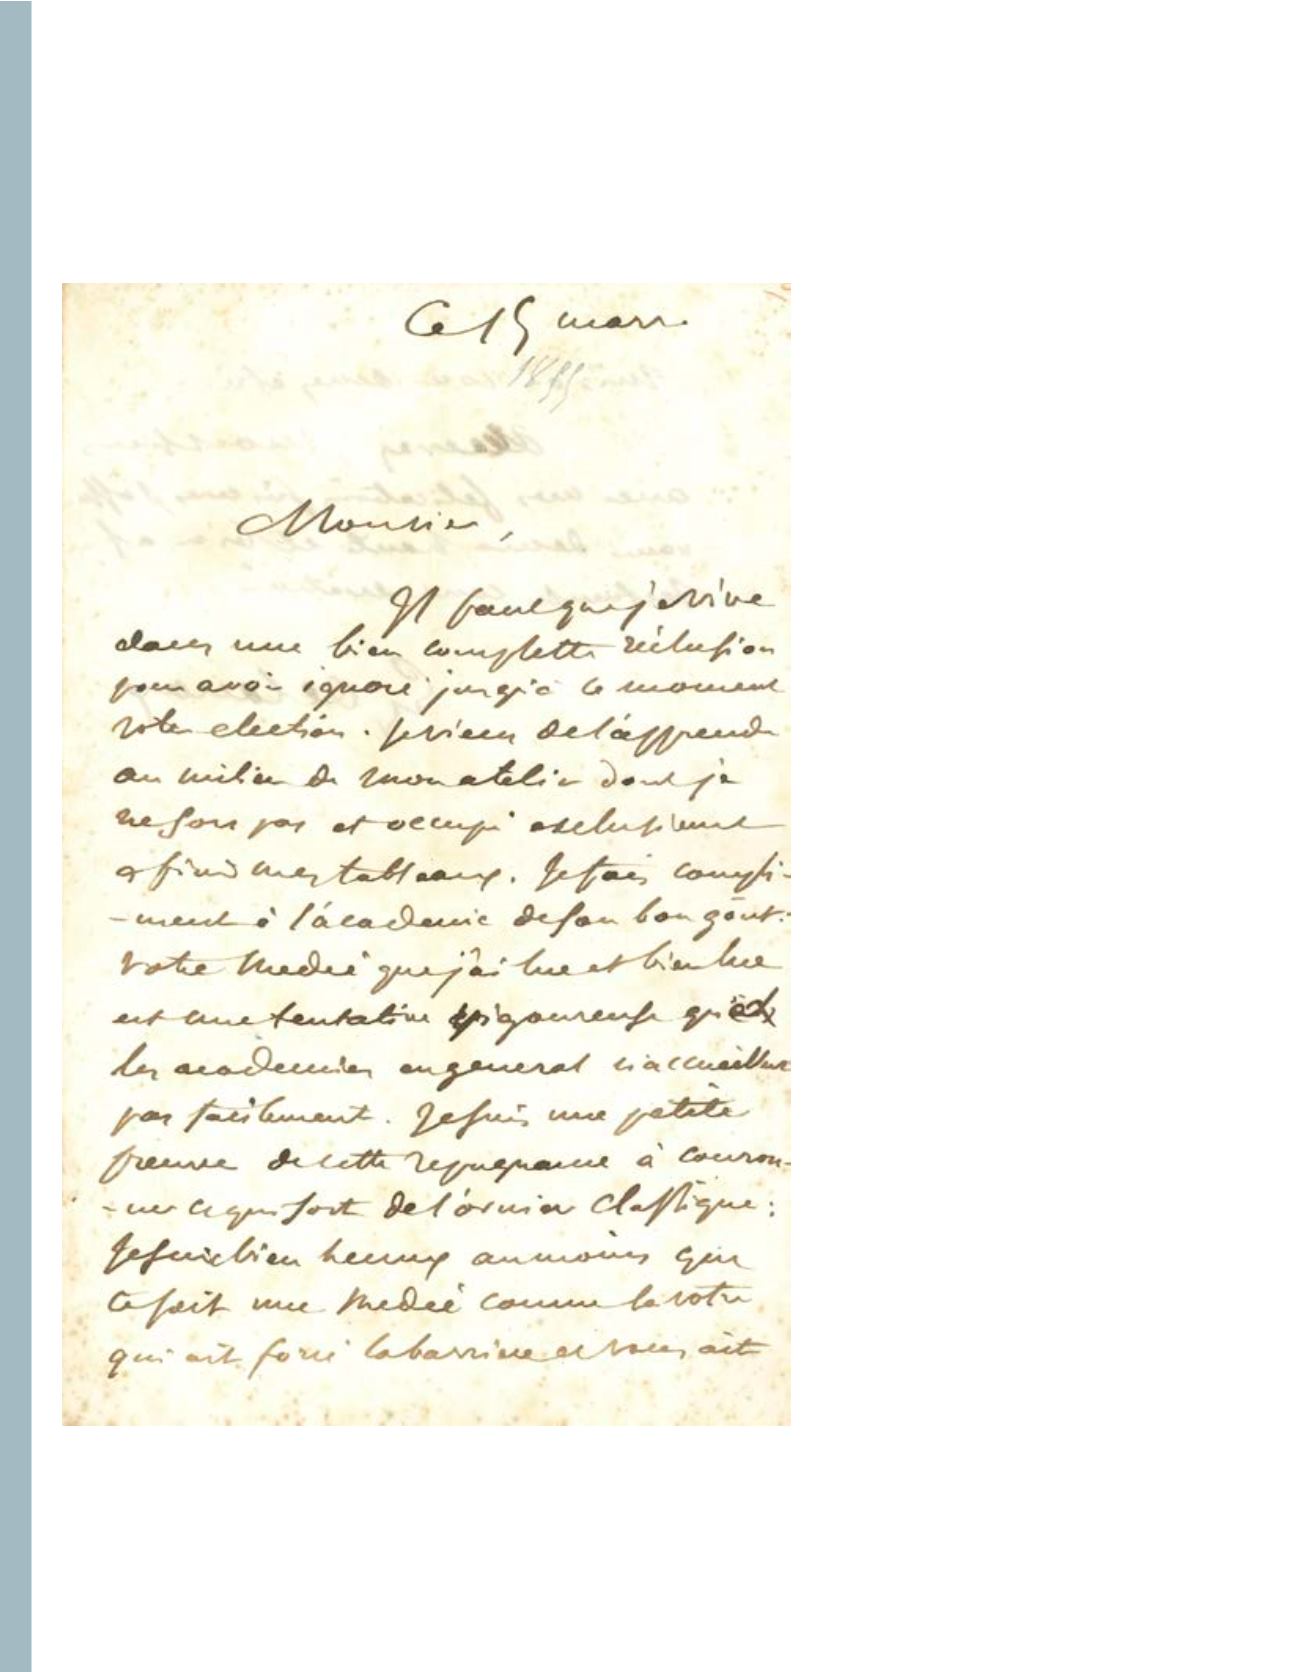 Ce 15 mars.
1855
Monsieur,
Il faut que je vive
dans une bien complette réclusion
pour avoir ignoré jusqu'à ce moment
votre election. Je viens de l'apprendre
au milieu de mon atelier dont je
ne sors pas et occupé exclusivement
a finir mes tableaux. Je fais compli-
-ment à l'académie de son bon goût:
votre Medée que j'ai lue et bien lue
est une tentative vigoureuse que
les academies en general n'accueillent
pas facilement. Je suis une petite
preuve de cette repugnance à couron-
-ner ce qui sort de l'ornière classique:
Je suis bien heureux au moins que
ce soit une Medée comme la votre
qui ait forcé la barriere et vous ait